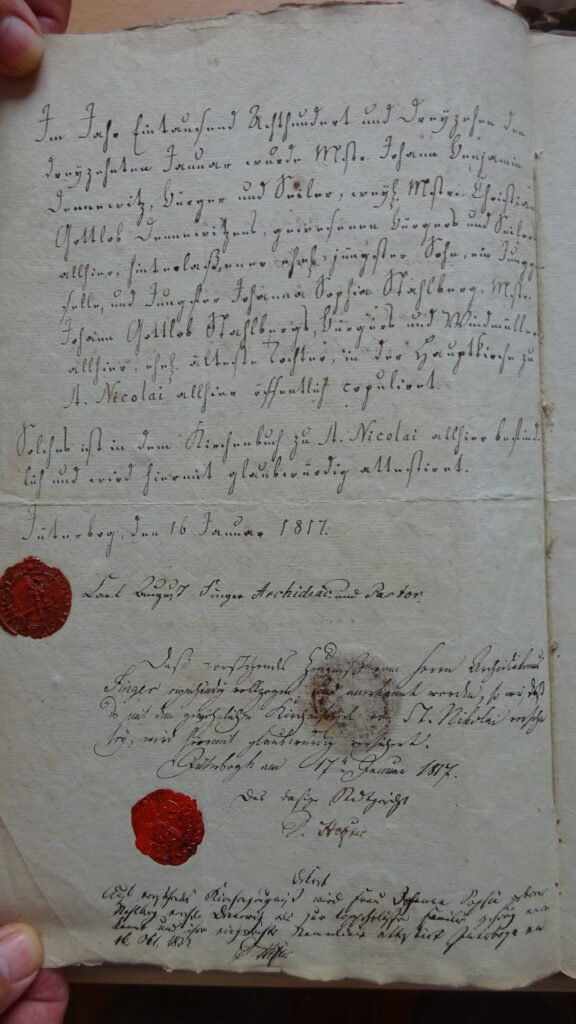 Im Jahr Eintausend Achthundert und Dreyzehen den
dreyzehnten Januar wurde Mstr. Johann Benjamin
Dennewitz, Bürger und Seiler, weyl. Mstr. Christian
Gottlob Dennewitzens, gewesenen Bürgers und Seilers
allhier, hinterlaßener ehel. jüngster Sohn, ein Jungge-
selle, und Jungfer Johanna Sophia Stahlberg, Mstr.
Johann Gottlob Stahlbergs, Bürgers und Windmüllers
allhier, ehel. älteste Tochter, in der Hauptkirche zu
St. Nicolai allhier öffentlich copuliret.
Solches ist in dem Kirchenbuch zu St. Nicolai allhier befind-
lich und wird hiermit glaubwürdig attestiret.
Jüterbog, den 16 Januar 1817.
Carl August Finger Archidiac: und Pastor.
Daß vorstehendes Zeugniß vom Herrn Archidiakonus
Finger eigenhändig vollzogen und anerkannt worden, so wie daß
es mit dem Kirchensiegel von St. Nikolai
sey, wird hiermit glaubwürdig
Jüterbogk am 17 Januar 1817.
Das Stadtgericht
wird Frau Johanna Sophia geborne
Stahlberg
12 Okt. 1832